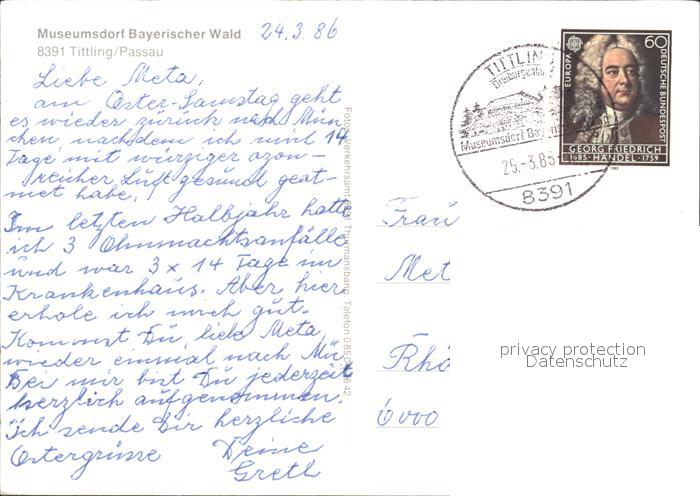 Museumsdorf Bayerischer Wald
8391 Tittling/Passau
24.3.86
Liebe Meta,
am Oster-Samstag geht
es wieder zurück nach Mün-
chen, nachdem ich mich 14
Tage mit würziger ozon-
reicher Luft gesund geat-
met habe.
Im letzten Halbjahr hatte
ich 3 Ohnmachtsanfälle
und war 3 x 14 Tage im
Krankenhaus. Aber hier
erhole ich mich gut.
Kommst Du, liebe Meta,
wieder einmal nach Mü
Bei mir bist Du jederzeit
herzlich aufgenommen.
Ich sende Dir herzliche
Ostergrüsse Deine
Gretl
Foto: Verkehrsamt Thurmansbang, Telefon
TITTLIN
Museumsdorf Bay
25.-3.86
8391
EUROPA
60
DEUTSCHE BUNDESPOST
GEORG FRIEDRICH
1685 · HÄNDEL · 1759
Frau
Met
Rhö
6000
privacy protection
Datenschutz